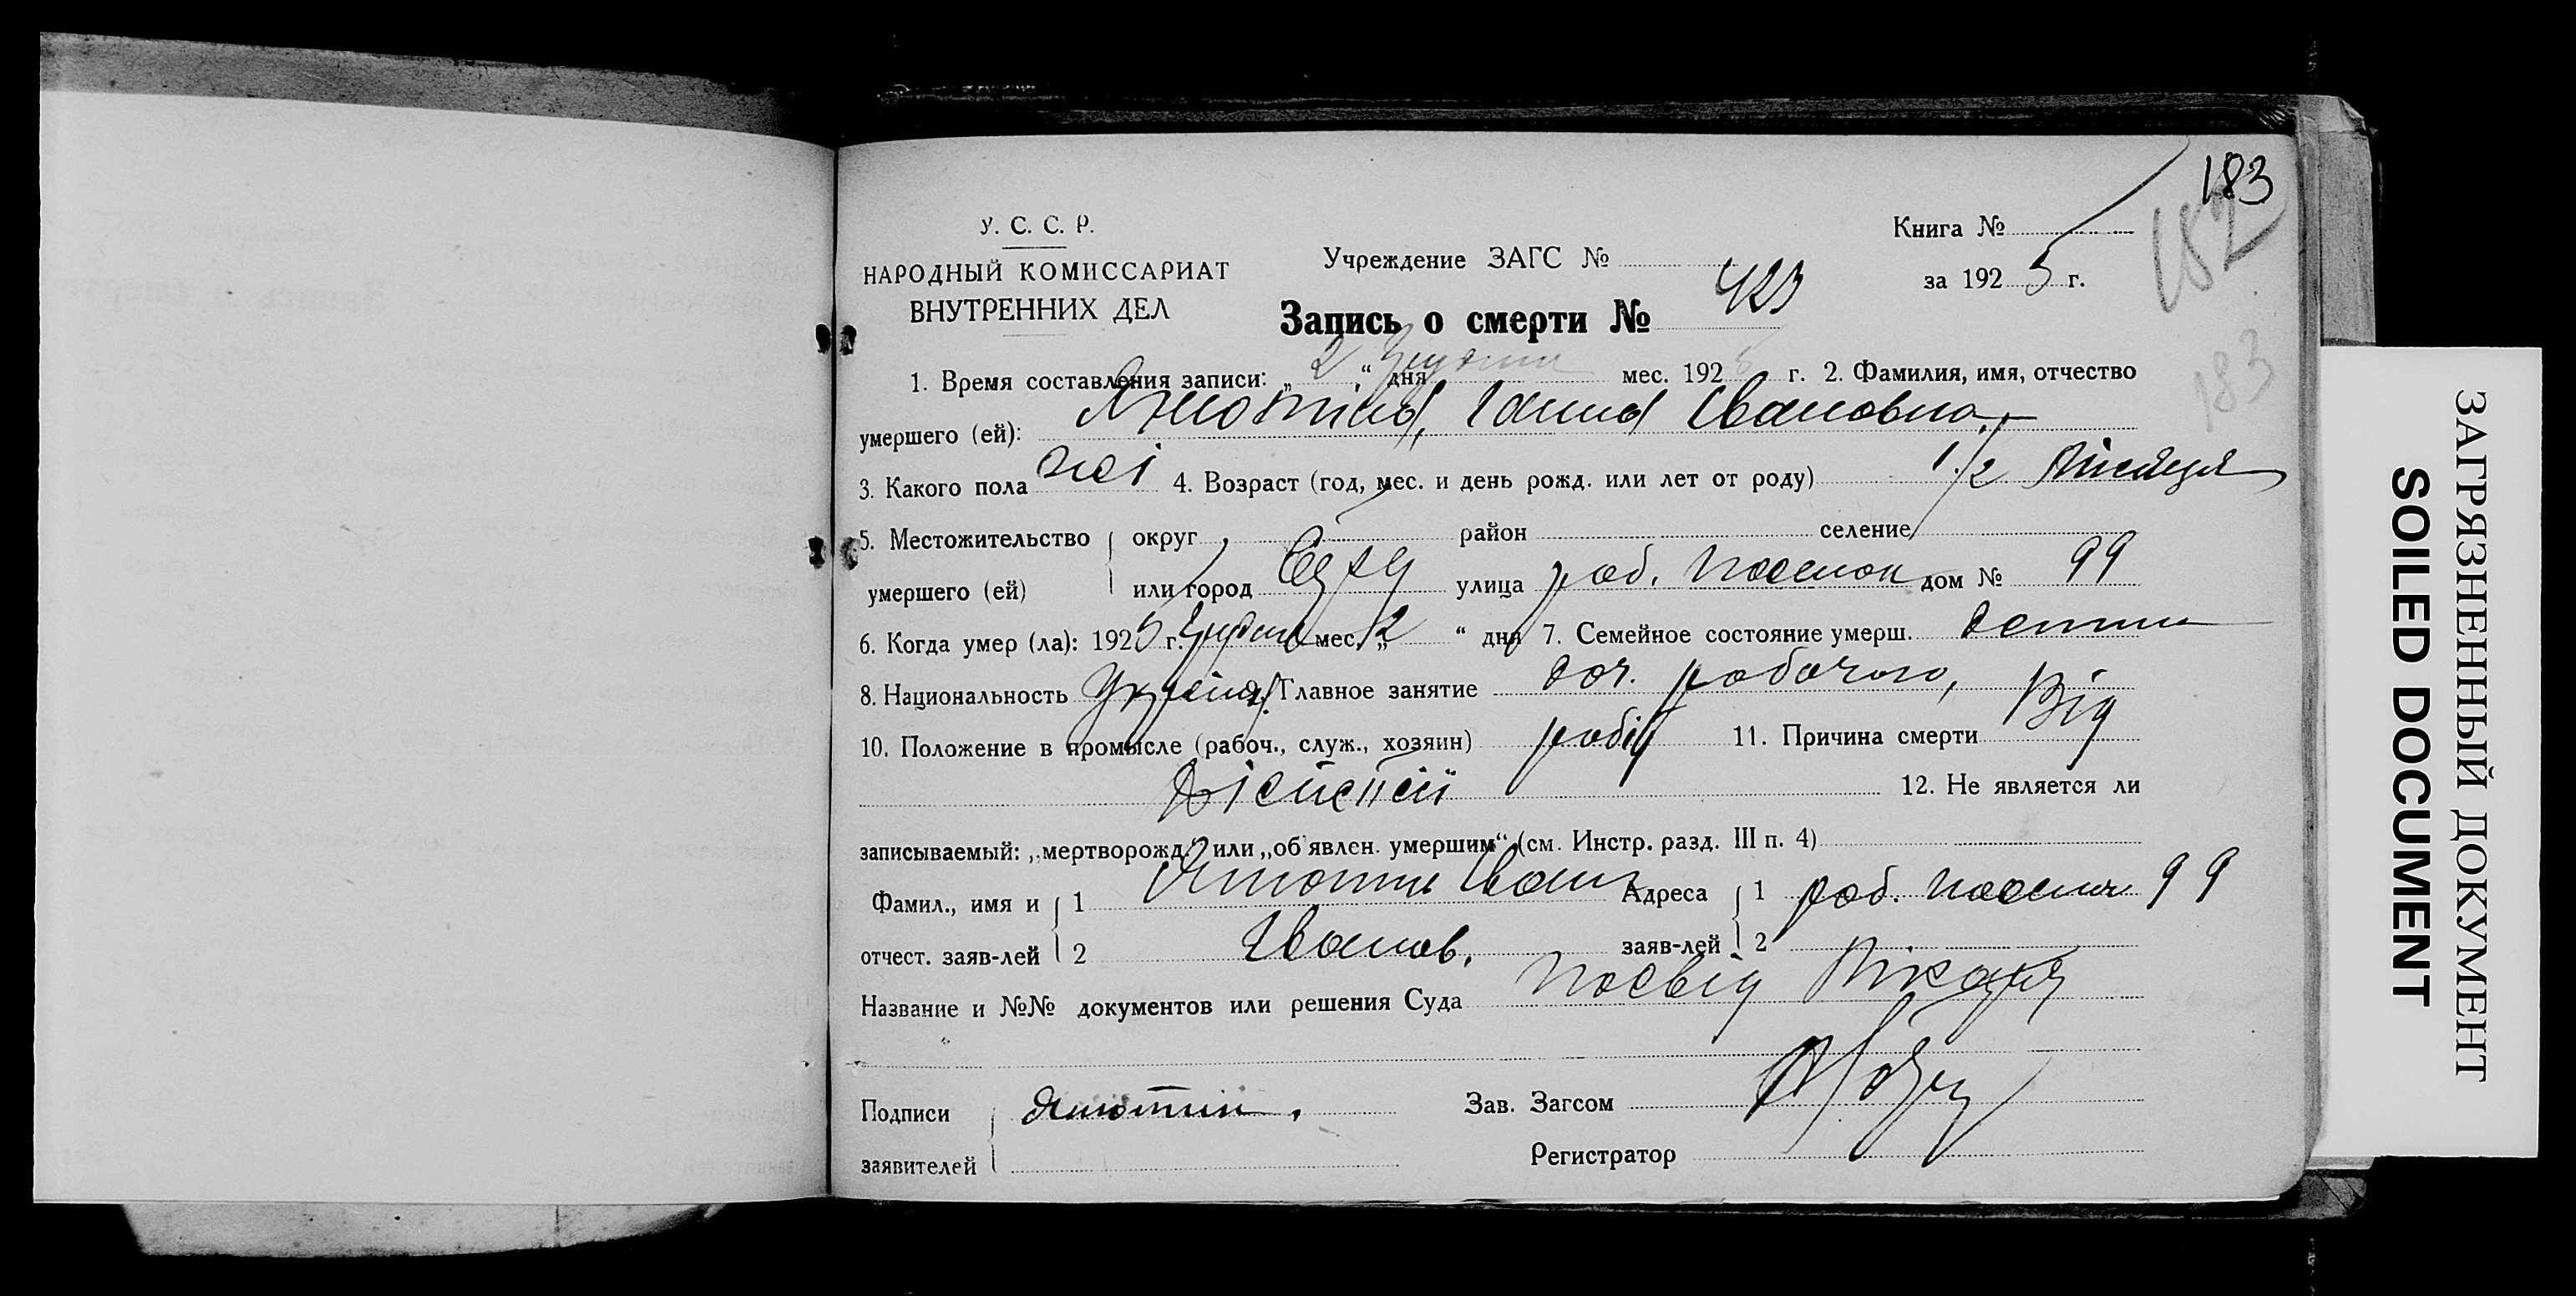 183
182
183
У. С. С. Р.
НАРОДНЫЙ КОМИССАРИАТ
ВНУТРЕННИХ ДЕЛ
Учреждение ЗАГС №
Книга №
за 1925 г.
Запись о смерти № 423
1. Время составления записи: „2“ дня Грудня мес. 1925 г. 2. Фамилия, имя, отчество
умершего (ей): Ганна Івановна
3. Какого пола жі 4. Возраст (год, мес. и день рожд. или лет от роду) 1/2 місяця
5. Местожительство округ район селение
умершего (ей) или город улица роб. поселок дом № 99
6. Когда умер (ла): 1925 г. Грудня мес. „2“ дня 7. Семейное состояние умерш.
8. Национальность 9. Главное занятие доч. робочого,
10. Положение в промысле (рабоч., служ., хозяин) робіт 11. Причина смерти Від
діспепсії 12. Не является ли
записываемый: „мертворожд.“ или „об'явлен. умершим“ (см. Инстр. разд. III п. 4)
Фамил., имя и 1 Іван Адреса 1 роб. поселок 99
отчест. заяв-лей 2 Іванов. заяв-лей 2
Название и №№ документов или решения Суда Посвід лікаря
Подписи
Зав. Загсом
заявителей
Регистратор
ЗАГРЯЗНЕННЫЙ ДОКУМЕНТ
SOILED DOCUMENT